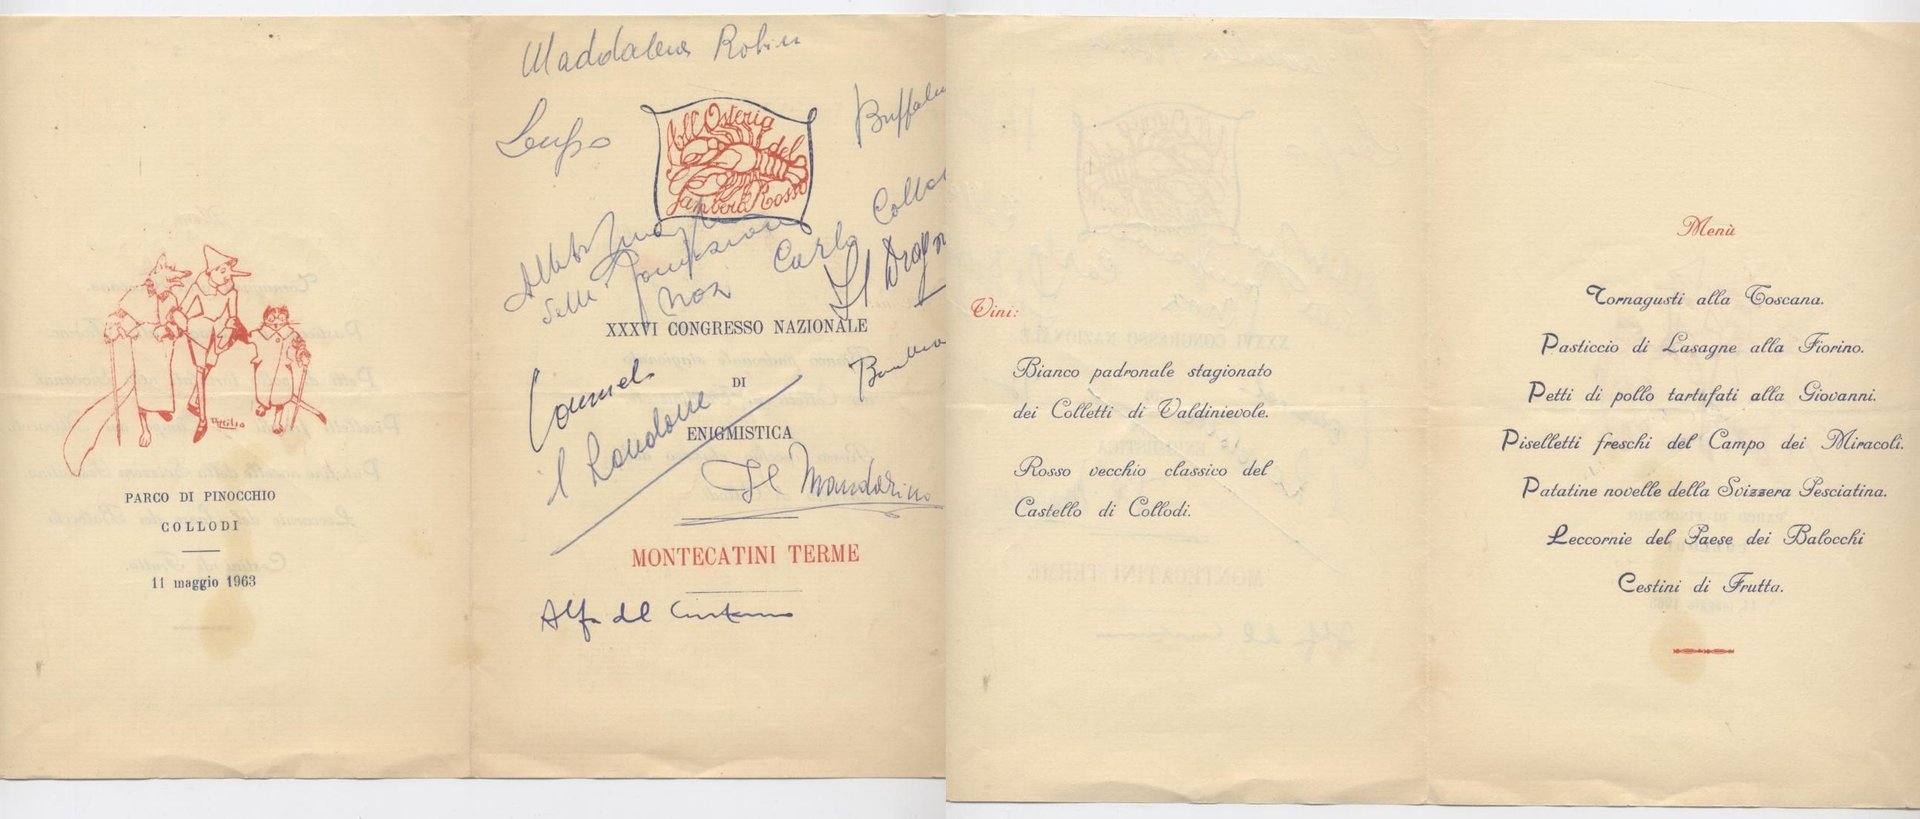 PARCO DI PINOCCHIO
COLLODI
11 maggio 1963
Maddalena Robin
All'Osteria
del
Gambero Rosso
Carlo
Noz
XXXVI CONGRESSO NAZIONALE
DI
ENIGMISTICA
il
Il Mandarino
MONTECATINI TERME
Alfa del
Vini:
Bianco padronale stagionato
dei Colletti di Valdinievole.
Rosso vecchio classico del
Castello di Collodi.
Menù
Tornagusti alla Toscana.
Pasticcio di Lasagne alla Fiorino.
Petti di pollo tartufati alla Giovanni.
Piselletti freschi del Campo dei Miracoli.
Patatine novelle della Svizzera Pesciatina.
Leccornie del Paese dei Balocchi
Cestini di Frutta.